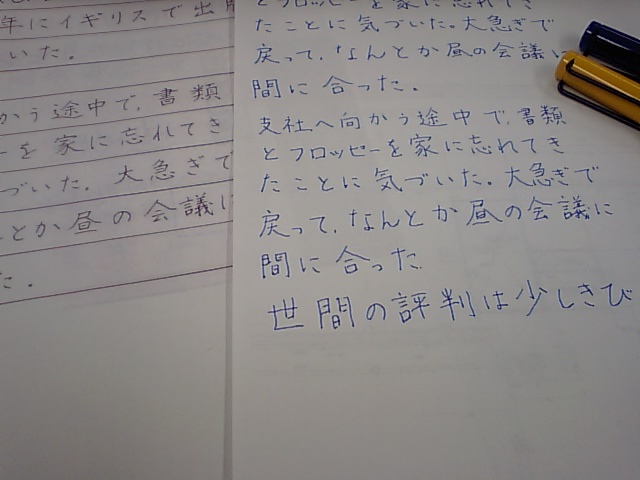 年にイギリスで出
いた。
かう途中で、書類
ーを家に忘れてき
づいた。大急ぎで
とか昼の会議に
た。
とフロッピーを家に忘れてき
たことに気づいた。大急ぎで
戻って、なんとか昼の会議に
間に合った。
支社へ向かう途中で、書類
とフロッピーを家に忘れてき
たことに気づいた。大急ぎで
戻って、なんとか昼の会議に
間に合った
世間の評判は少しきび